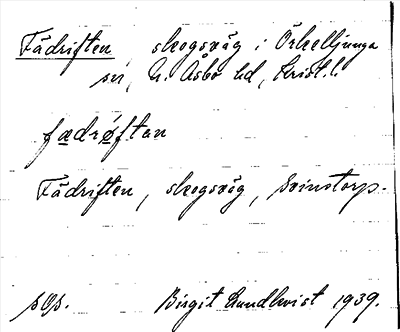 Fädriften, skogsväg i Örkelljunga
sn, N. Åsbo hd, Krist. l.
fædrøftan
Fädriften, skogsväg, Svinstorp.
sös. Birgit Lundkvist 1939.